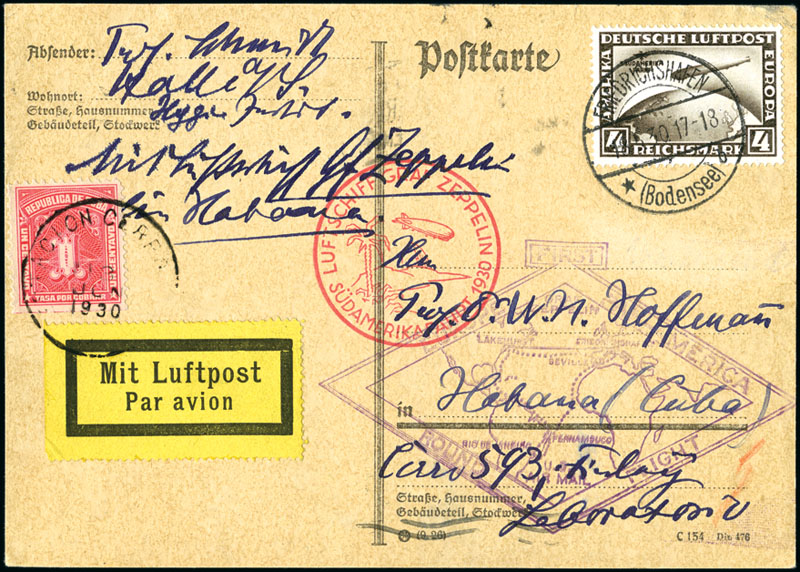 Absender: Prof. Schmidt
Halle a/S
Wohnort:
Straße, Hausnummer
Gebäudeteil, Stockwerk
Hygien. Instit.
Mit Luftschiff Gf Zeppelin
bis Habana.
Postkarte
DEUTSCHE LUFTPOST
EUROPA
SÜDAMERIKA
4 REICHSMARK 4
FRIEDRICHSHAFEN
17-18
(Bodensee)
REPUBLICA DE CUBA
UN CENTAVO
1
TASA POR COBRAR
CERRO
1930
LUFTSCHIFF GRAF ZEPPELIN
SÜDAMERIKAFAHRT 1930
Mit Luftpost
Par avion
FIRST
AMERICA
ROUND FLIGHT
LAKEHURST
SEVILLA
RIO DE JANEIRO
PERNAMBUCO
MAIL
Herrn
Prof. Dr. W. H. Hoffmann
in Habana (Cuba)
Cerro 593, Finlay
Laboratorio
Straße, Hausnummer,
Gebäudeteil, Stockwerk
(9. 26)
C 154 Din 476